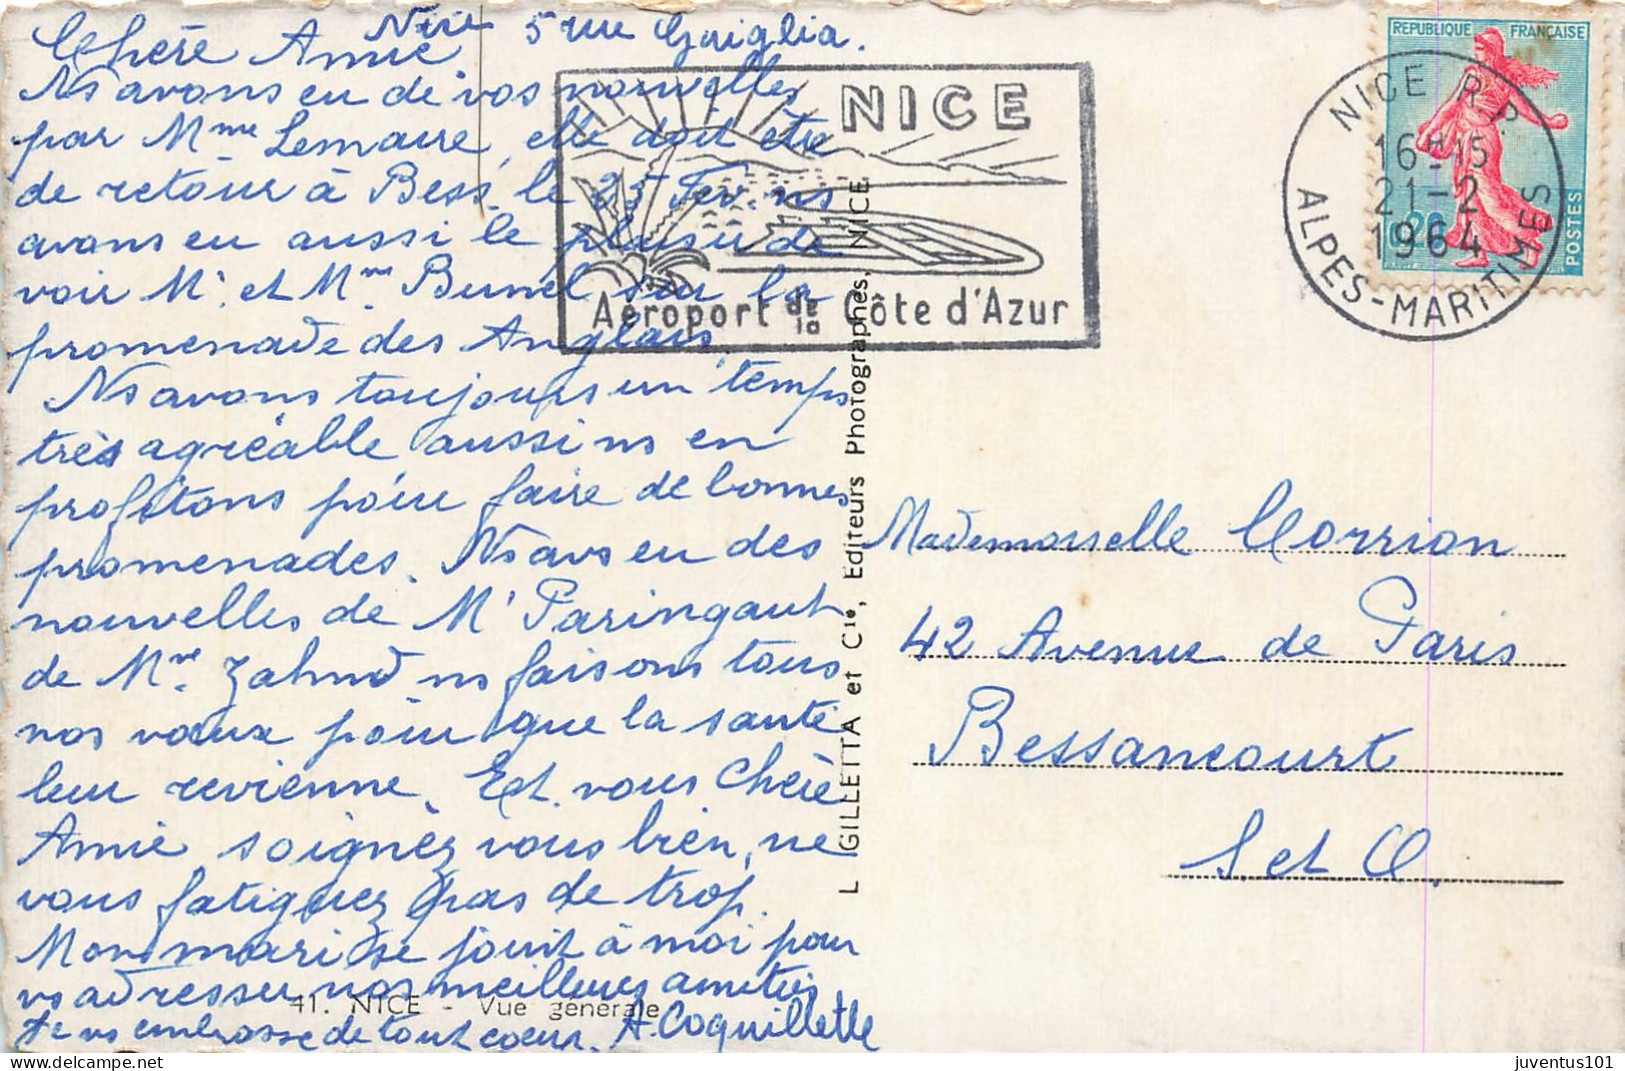 Nice 5 rue Guiglia.
Chère Amie
Ns avons eu de vos nouvelles
par Mme Lemaire, elle doit être
de retour à Bess. le 25 Fev ns
avons eu aussi le plaisir de
voir Mr. et Mme. Bunel sur la
promenade des Anglais.
Ns avons toujours un temps
très agréable aussi ns en
profitons pour faire de bonnes
promenades. Ns avs eu des
nouvelles de Mr Paringaut
de Mme. Zahnd ns faisons tous
nos voeux pour que la santé
leur revienne. Et. vous Chère
Amie soignez vous bien, ne
vous fatiguez pas de trop.
Mon mari se joint à moi pour
vs adresser nos meilleures amitiés
Je vs embrasse de tout coeur. A. Coquillette
41. NICE - Vue générale
NICE
Aéroport de la Côte d'Azur
L GILLETTA et Cie, Editeurs Photographes, NICE
REPUBLIQUE FRANÇAISE
0,20
POSTES
NICE R.P.
16H15
21-2
1964
ALPES-MARITIMES
Mademoiselle Corrion
42 Avenue de Paris
Bessancourt
S. et O.
juventus101